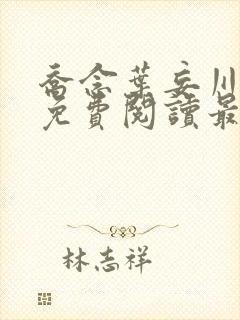 喬念葉妄川
免費閱讀最
林志祥